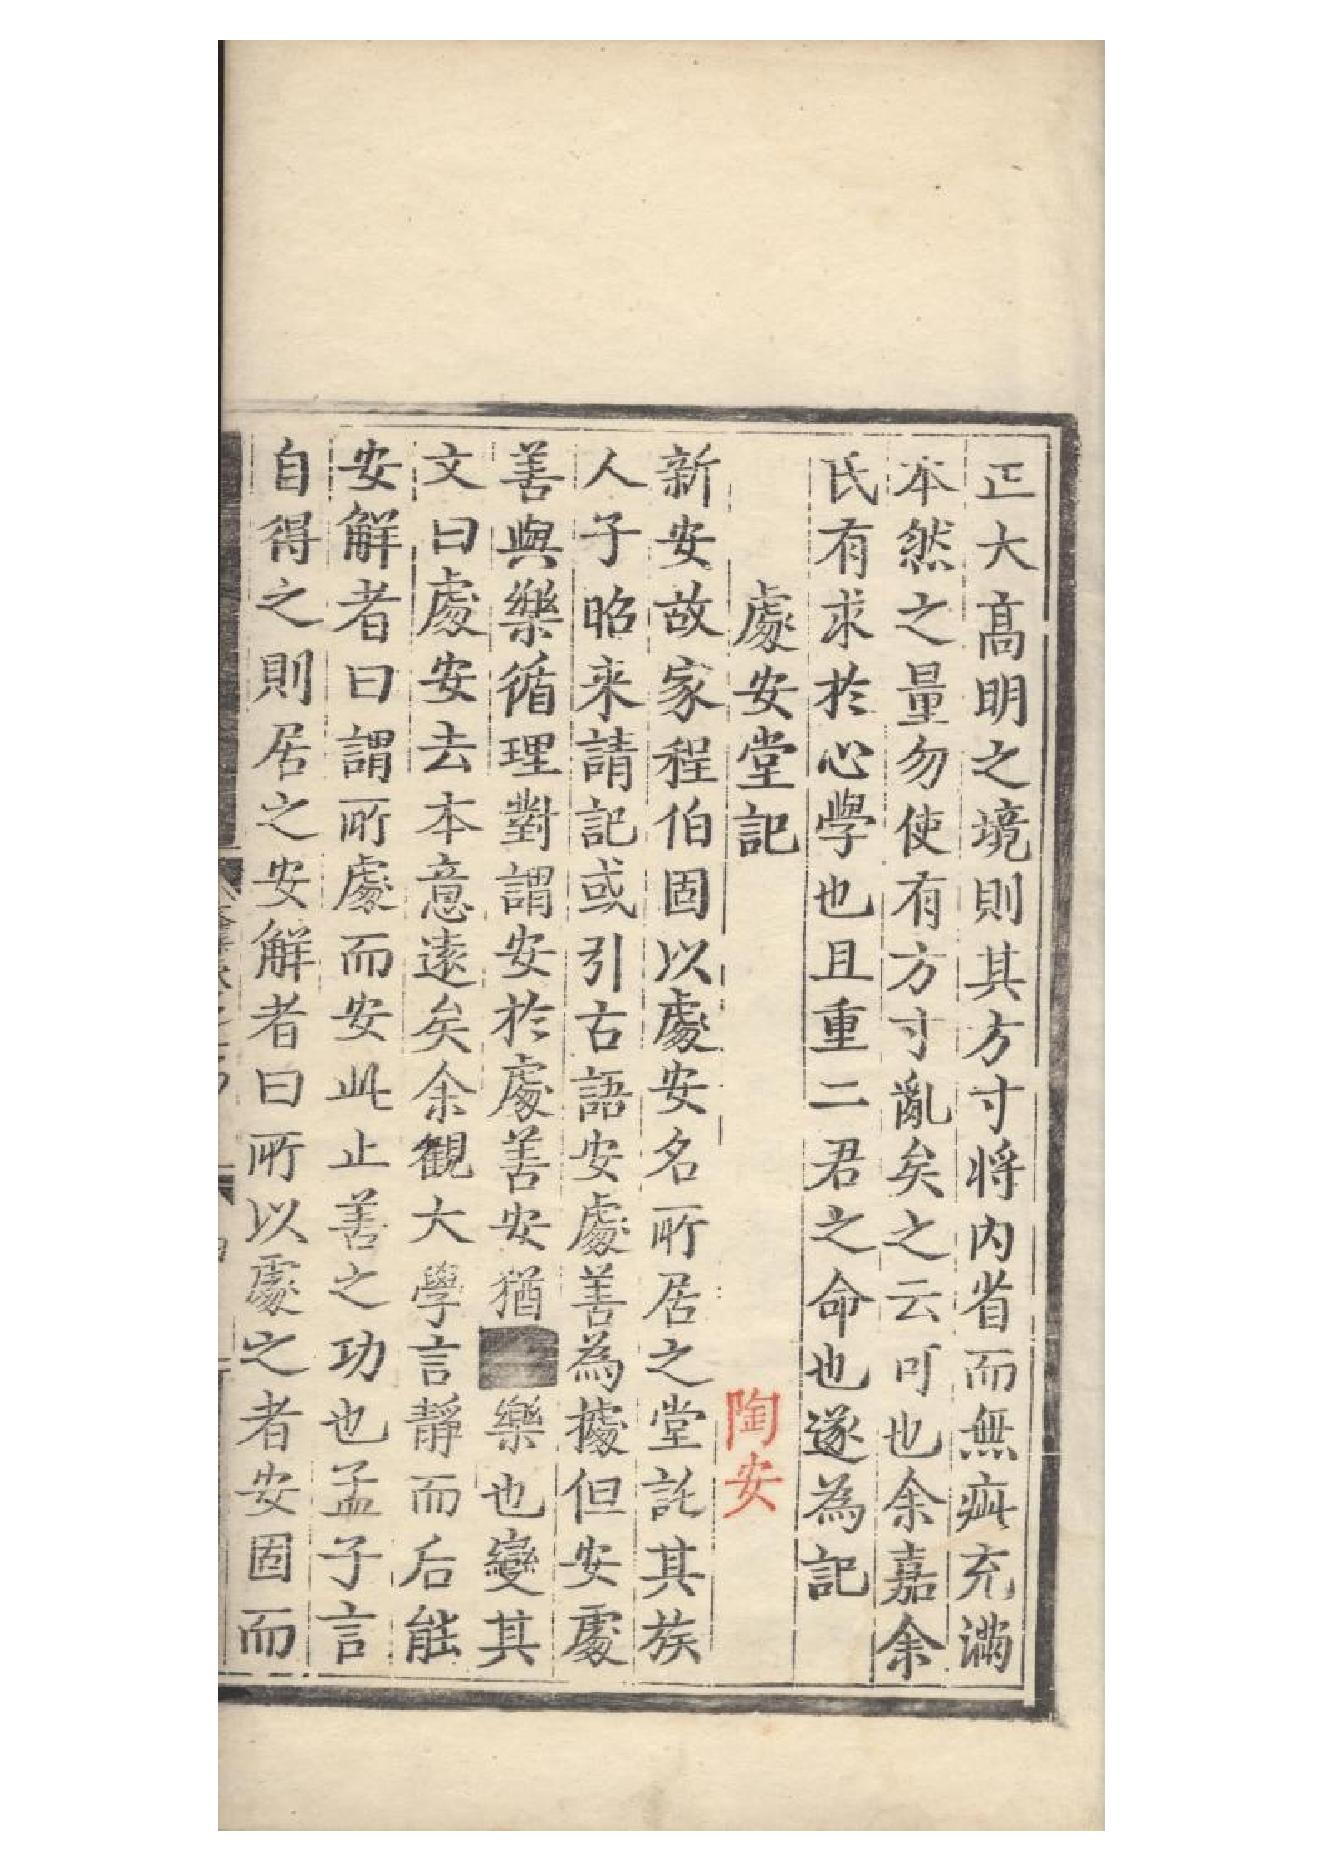 正大高明之境則其方寸将内省而無疵充滿
本然之量勿使有方寸亂矣之云可也余嘉余
氏有求於心學也且重二君之命也遂為記
處安堂記 陶安
新安故家程伯固以處安名所居之堂託其族
人子昭来請記或引古語安處善為據但安處
善與樂循理對謂安於處善安猶樂也變其
文曰處安去本意遠矣余觀大學言靜而后能
安解者曰謂所處而安此止善之功也孟子言
自得之則居之安解者曰所以處之者安固而